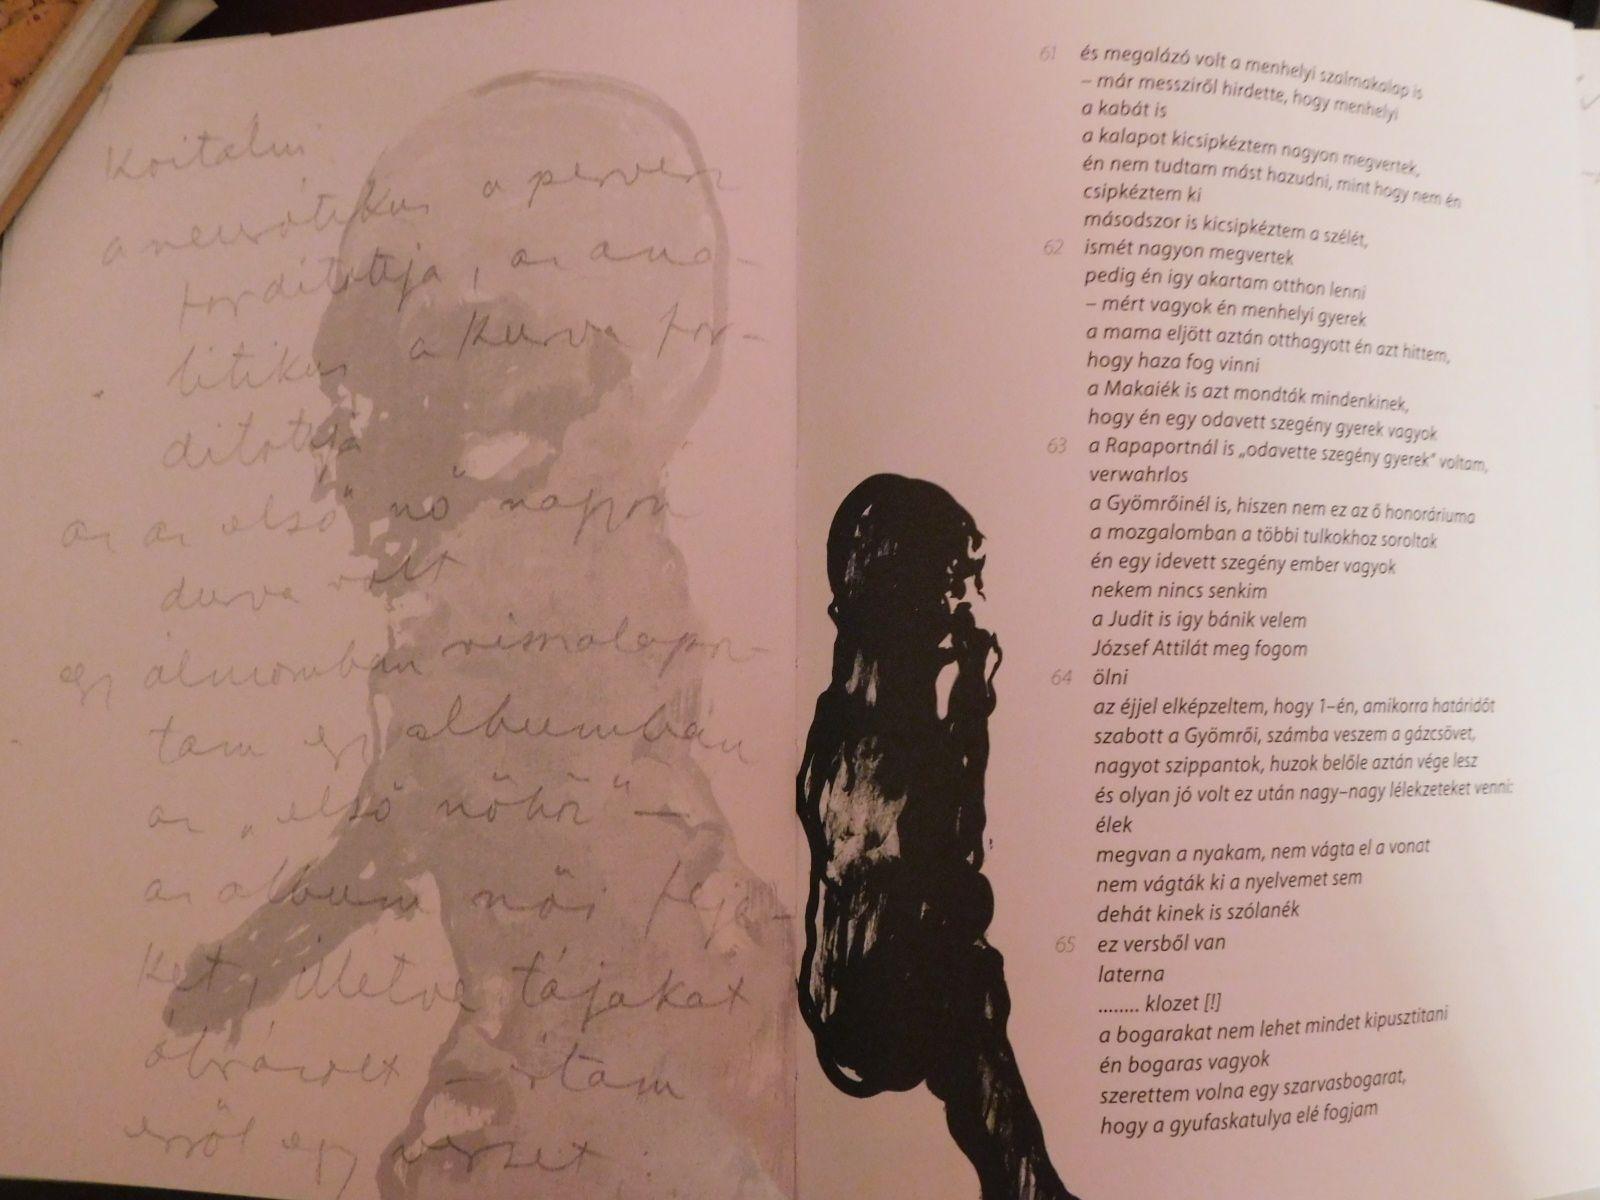 Koitalni
a neurótikus a pervers
fordítottja, az ana-
litikus a kurva for-
dítottja
az az első nő nagyon
durva volt
egy álmomban visszalapoz-
tam egy albumban
az „első nőhöz" —
az album női feje-
ket, illetve tájakat
ábrázolt – írtam
erről egy verset
61 és megalázó volt a menhelyi szalmakalap is
– már messziről hirdette, hogy menhelyi
a kabát is
a kalapot kicsipkéztem nagyon megvertek,
én nem tudtam mást hazudni, mint hogy nem én
csipkéztem ki
másodszor is kicsipkéztem a szélét,
62 ismét nagyon megvertek
pedig én igy akartam otthon lenni
– mért vagyok én menhelyi gyerek
a mama eljött aztán otthagyott én azt hittem,
hogy haza fog vinni
a Makaiék is azt mondták mindenkinek,
hogy én egy odavett szegény gyerek vagyok
63 a Rapaportnál is „odavette szegény gyerek" voltam,
verwahrlos
a Gyömrőinél is, hiszen nem ez az ő honoráriuma
a mozgalomban a többi tulkokhoz soroltak
én egy idevett szegény ember vagyok
nekem nincs senkim
a Judit is igy bánik velem
József Attilát meg fogom
64 ölni
az éjjel elképzeltem, hogy 1–én, amikorra határidőt
szabott a Gyömrői, számba veszem a gázcsövet,
nagyot szippantok, huzok belőle aztán vége lesz
és olyan jó volt ez után nagy–nagy lélekzeteket venni:
élek
megvan a nyakam, nem vágta el a vonat
nem vágták ki a nyelvemet sem
dehát kinek is szólanék
65 ez versből van
laterna
........ klozet [!]
a bogarakat nem lehet mindet kipusztitani
én bogaras vagyok
szerettem volna egy szarvasbogarat,
hogy a gyufaskatulya elé fogjam